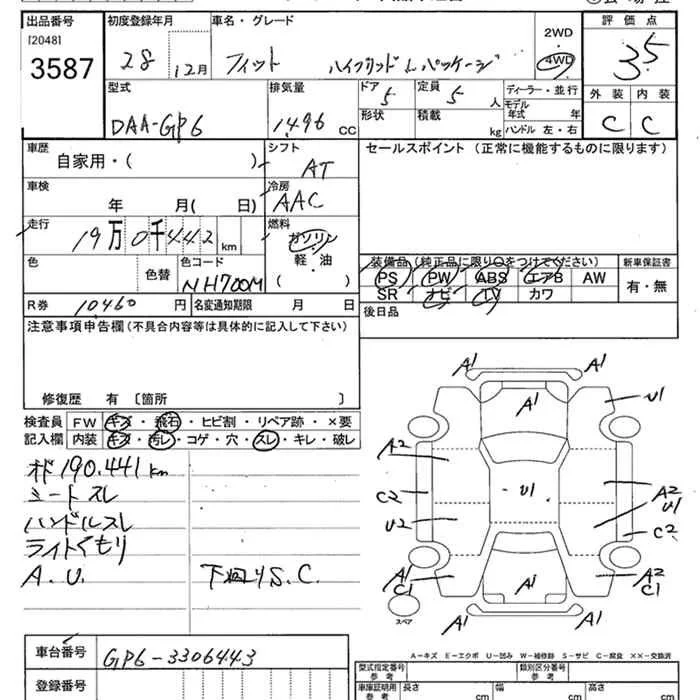 出品番号 初度登録年月 車名・グレード 2WD 評価点
[2048]
3587 28 12月 フィット ハイブリッド L パッケージ 4WD 3.5
型式 排気量 ドア 5 定員 5人 ディーラー・並行 外装 内装
DAA-GP6 1496 CC 形状 積載 kg モデル年式 年 C C
ハンドル 左・右
車歴 シフト セールスポイント(正常に機能するものに限ります)
自家用・( ) AT
車検 冷房
年 月( 日) AAC
走行 燃料
19万0千442km ガソリン
軽・油
色 色替 色コード ( ) 装備品(純正品に限り○をつけてください) 新車保証書
NH700M PS PW ABS エアB AW 有・無
SR ナビ TV カワ
R券 10460円 名変通知期限 月 日 後日品
注意事項申告欄(不具合内容等は具体的に記入して下さい)
修復歴 有 〔箇所 〕
検査員 FW キズ・飛石・ヒビ割・リペア跡・×要
記入欄 内装 キズ・汚レ・コゲ・穴・スレ・キレ・破レ
190.441km
シートスレ
ハンドルスレ
ライトくもり
A.U. 下廻りS.C.
A1 A1
A1 U1
A2
C2 U1 A2
U1
U2 C2
A1 A2
C1 A1 C1
スペア A1 A1
A-キズ E-エクボ U-凹み W-補修跡 S-サビ C-腐食 XX-交換済
車台番号 GP6-3306443 型式指定番号 参考 類別区分番号 参考
登録番号 車庫証明用 参考 長さ cm 幅 cm 高さ cm